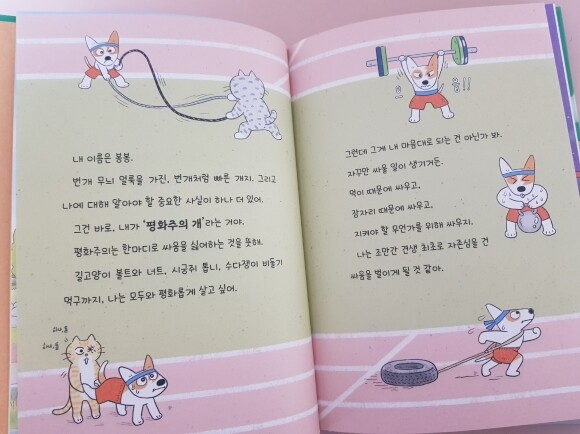 내 이름은 봉봉.
번개 무늬 얼룩을 가진, 번개처럼 빠른 개지. 그리고
나에 대해 알아야 할 중요한 사실이 하나 더 있어.
그건 바로, 내가 '평화주의 개'라는 거야.
평화주의는 한마디로 싸움을 싫어하는 것을 뜻해.
길고양이 볼트와 너트, 시궁쥐 톰니, 수다쟁이 비둘기
먹구까지, 나는 모두와 평화롭게 살고 싶어.
하나, 둘
하나, 둘
으
흠!!
그런데 그게 내 마음대로 되는 건 아닌가 봐.
자꾸만 싸울 일이 생기거든.
먹이 때문에 싸우고,
잠자리 때문에 싸우고,
지켜야 할 무언가를 위해 싸우지.
나는 조만간 견생 최초로 자존심을 건
싸움을 벌이게 될 것 같아.